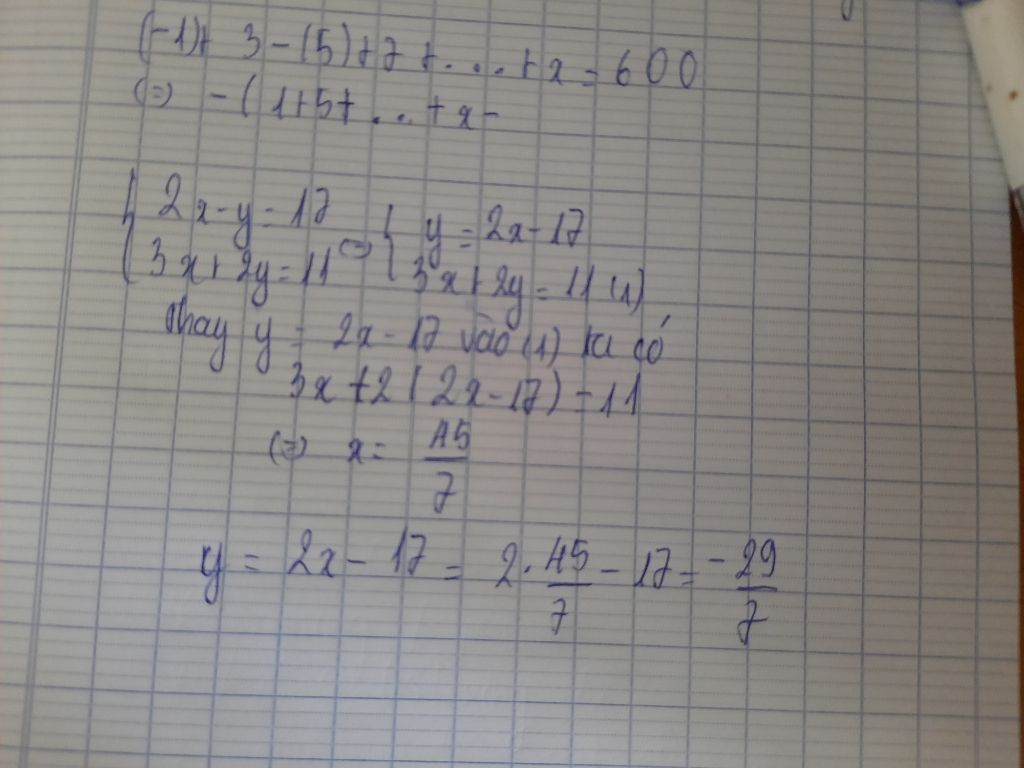 (-1)+ 3 - (5) + 7 + .... + x = 600
(=) - ( 1+5+ ... + x -
{ 2x - y = 17 (=) { y = 2x - 17
{ 3x + 2y = 11 { 3x + 2y = 11 (1)
Thay y = 2x - 17 vào (1) ta có
3x + 2 ( 2x - 17) = 11
(=) x = 45/7
y = 2x - 17 = 2 . 45/7 - 17 = -29/7